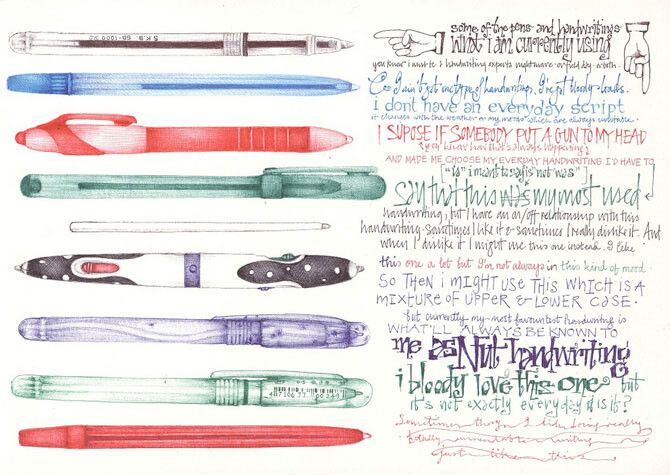 some of the pens and handwritings
what i am currently using
you know i am a handwriting experts nightmare
Cos I ain't got one type of handwriting, I've got bloody loads.
i dont have an everyday script
it changes with the weather or my moods which are always
I SUPOSE IF SOMEBODY PUT A GUN TO MY HEAD
(you know how that's always happening)
AND MADE ME CHOOSE MY EVERDAY HANDWRITING I'D HAVE TO
"is" i meant to say is not was"
say that this was my most used
handwriting, but I have an on/off relationship with this
handwriting. Sometimes I like it & sometimes I really dislike it. And
when I dislike it I might use this one instead. I like
this one a lot but I'm not always in this kind of mood.
SO THEN i MIGHT USE THIS WHICH IS A
MIXTURE OF UPPER & LOWER CASE.
but currently my most favouritest handwriting is
WHAT'LL ALWAYS BE KNOWN TO
me as Nut-handwriting
i bloody love this one but
it's not exactly everyday is it?
Sometimes though I like doing really
totally unreadable writing
just like this